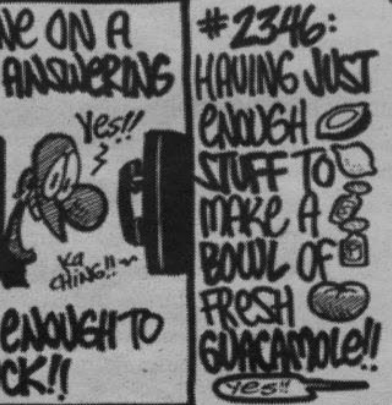 NE ON A
ANSWERING
Yes!!
Ka
CHING!!~
ENOUGH TO
CK!!
#2346:
HAVING JUST
ENOUGH
STUFF TO
MAKE A
BOWL OF
FRESH
GUACAMOLE!!
Yes!!